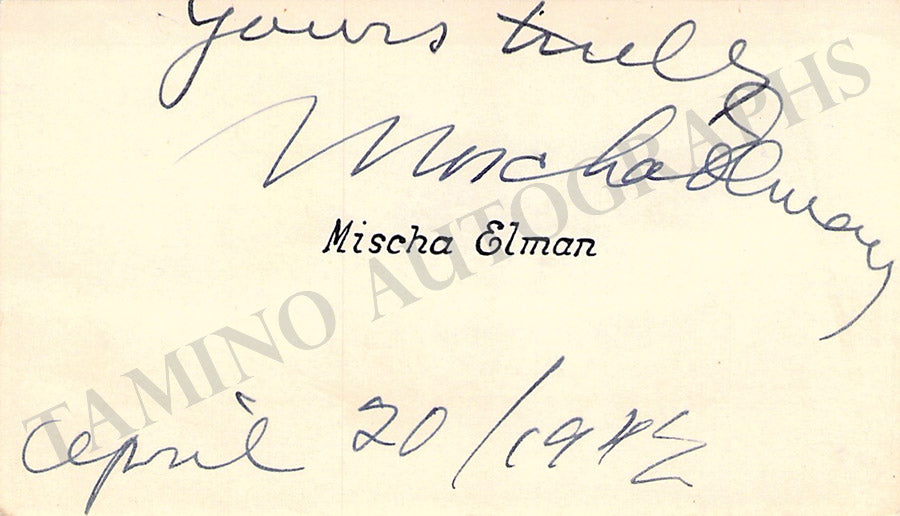 Yours truly
Mischa Elman
Mischa Elman
TAMINO AUTOGRAPHS
April 20/1942